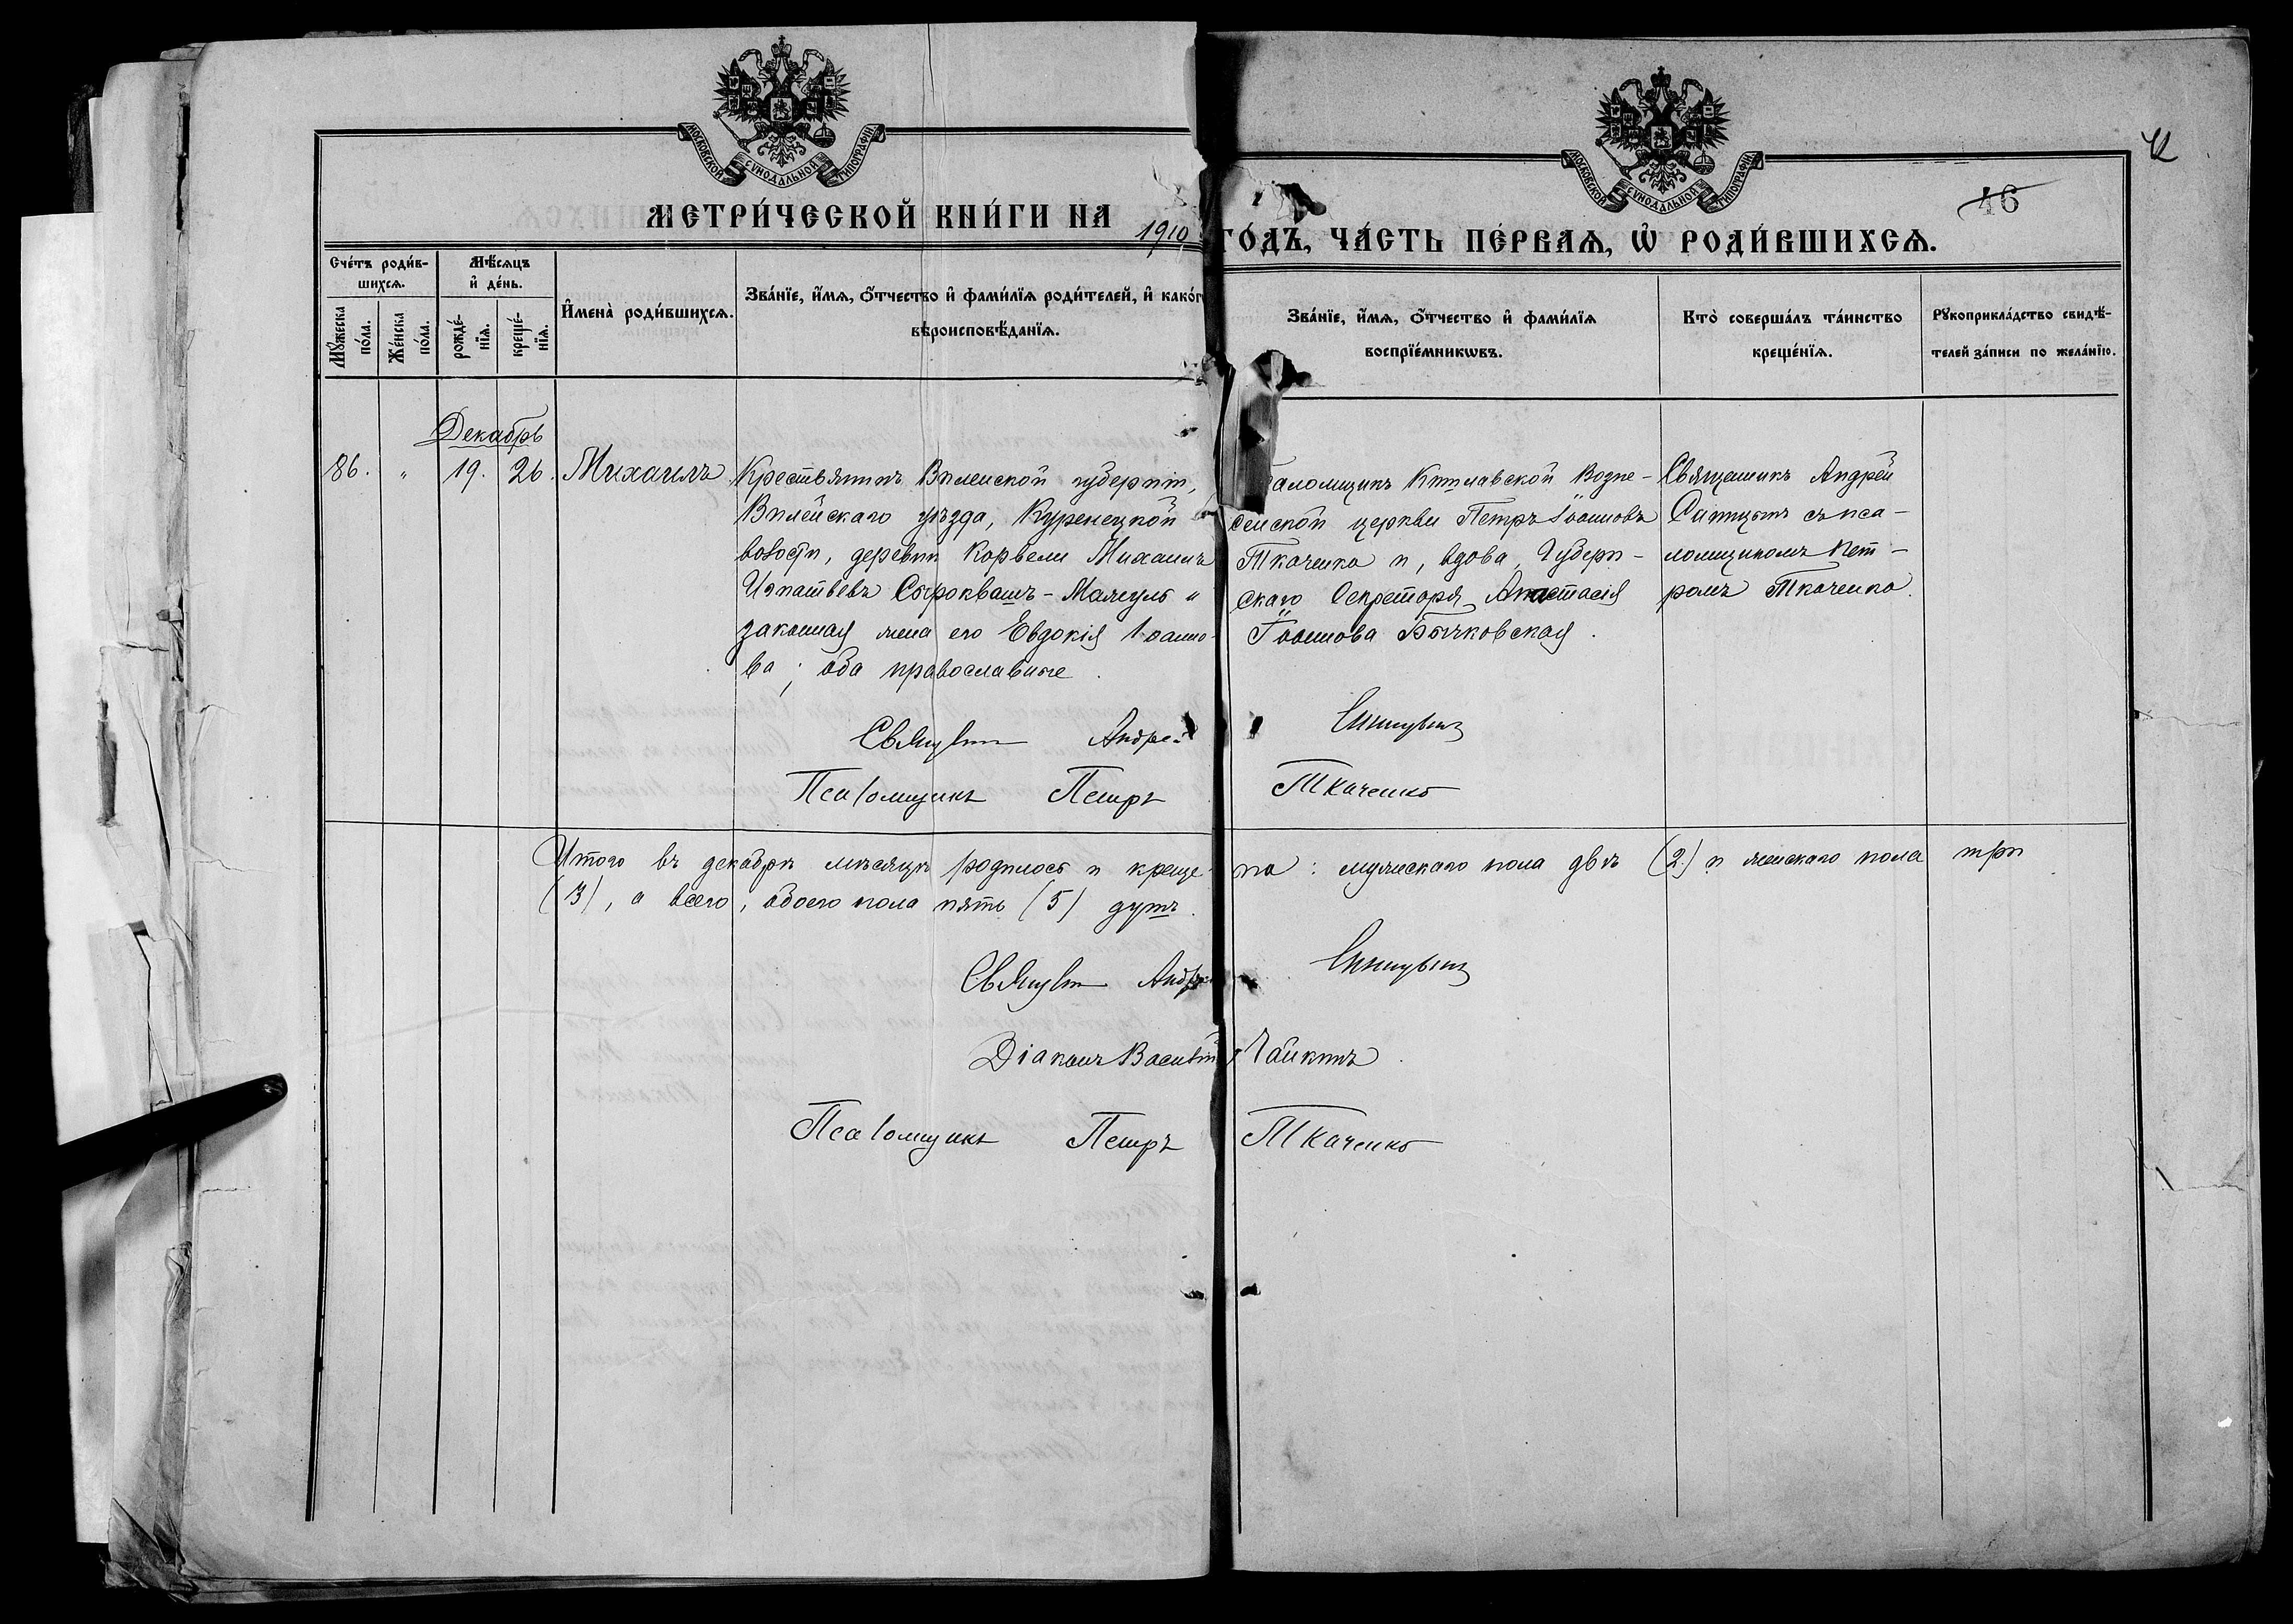 МОСКОВСКОЙ СѴНОДАЛЬНОЙ ТИПОГРАФІИ
МОСКОВСКОЙ СѴНОДАЛЬНОЙ ТИПОГРАФІИ
42
46
МЕТРИ́ЧЕСКОЙ КНИ́ГИ НА 1910 ГО́ДЪ, ЧА́СТЬ ПЕ́РВАЯ, Ѡ РОДИ́ВШИХСЯ.
Сче́тъ роди́в-
шихся.
Мѣ́сяцъ
и҆ де́нь.
Мꙋ́жеска
по́ла.
Же́нска
по́ла.
рожде́-
нїя.
креще́-
нїя.
И҆мена̀ роди́вшихся.
Зва́нїе, и҆́мя, ѻ҆́тчество и҆ фами́лїя роди́телей, и҆ како́г
вѣроисповѣ́данїя.
Зва́нїе, и҆́мя, ѻ҆́тчество и҆ фами́лїя
воспрїе́мникѡвъ.
Кто̀ соверша́лъ та́инство
креще́нїя.
Рꙋкоприкла́дство свидѣ́-
телей за́писи по жела́нїю.
Декабрь
86. " 19. 26. Михаилъ
Крестьянинъ Виленской губерніи,
Вилейскаго уѣзда, Куренецкой
волости, деревни Корвели Михаилъ
Игнатьевъ Сыроквашъ-Малеуль и
законная жена его Евдокія Іоанно-
ва; оба православные.
саломщикъ Кишлавской Возне-
сенской церкви Петръ Іоанновъ
Ткаченко и, вдова, Губерн-
скаго Секретаря Анастасія
Іоаннова Бычковская.
Священникъ Андрей
Синицынъ съ пса-
ломщикомъ Пет-
ромъ Ткаченко.
Священ Андрей Синицынъ
Псаломщикъ Петръ Ткаченко
Итого въ декабрѣ мѣсяцѣ родилось и креще-но: мужескаго пола два (2) и женскаго пола три
(3), а всего, обоего пола пять (5) душъ.
Священ Андрей Синицынъ
Діаконъ Василій Чайкинъ.
Псаломщикъ Петръ Ткаченко